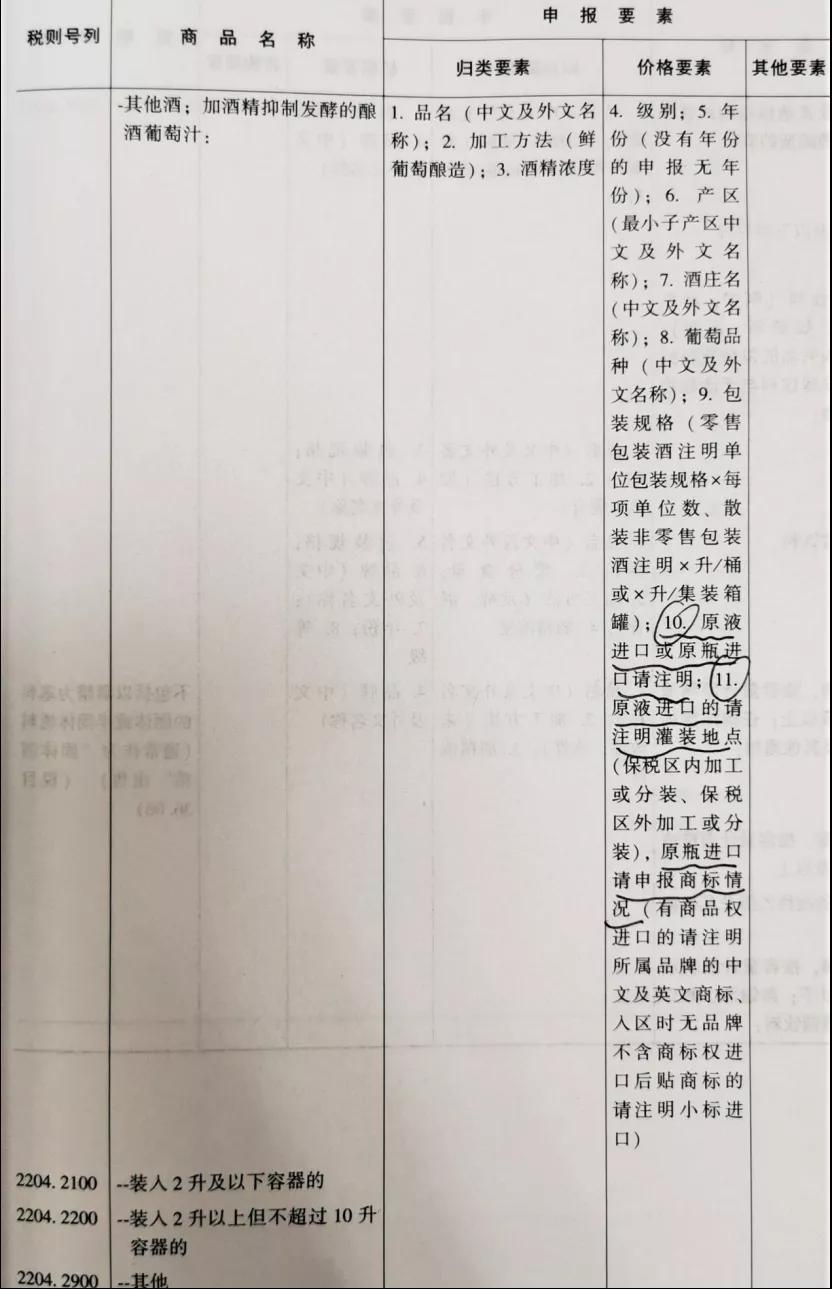 申报要素
税则号列
商品名称
归类要素
价格要素
其他要素
-其他酒；加酒精抑制发酵的酿
酒葡萄汁：
1. 品名（中文及外文名
称）；2. 加工方法（鲜
葡萄酿造）；3. 酒精浓度
4. 级别；5. 年
份（没有年份
的申报无年
份）；6. 产区
（最小子产区中
文及外文名
称）；7. 酒庄名
（中文及外文名
称）；8. 葡萄品
种（中文及外
文名称）；9. 包
装规格（零售
包装酒注明单
位包装规格×每
项单位数、散
装非零售包装
酒注明×升/桶
或×升/集装箱
罐）；10. 原液
进口或原瓶进
口请注明；11.
原液进口的请
注明灌装地点
（保税区内加工
或分装、保税
区外加工或分
装），原瓶进口
请申报商标情
况（有商品权
进口的请注明
所属品牌的中
文及英文商标、
入区时无品牌
不含商标权进
口后贴商标的
请注明小标进
口）
2204.2100
--装入2升及以下容器的
2204.2200
--装入2升以上但不超过10升
容器的
2204.2900
--其他